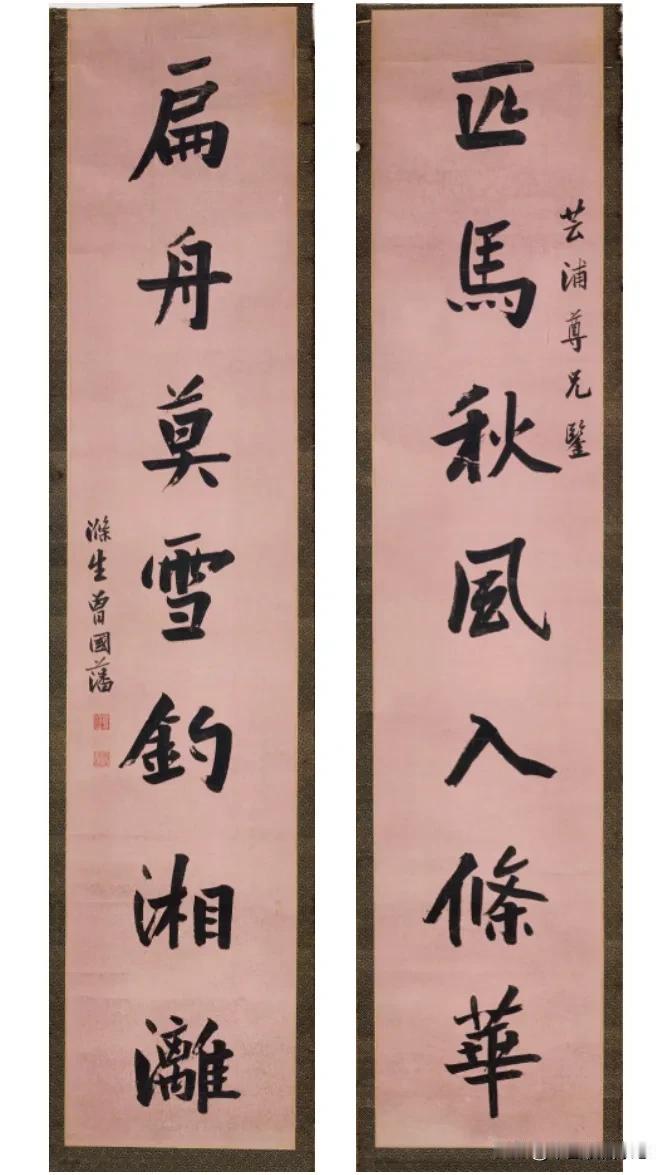 芸浦尊兄鑒
匹馬秋風入條華
扁舟莫雪釣湘灕
滌生曾國藩